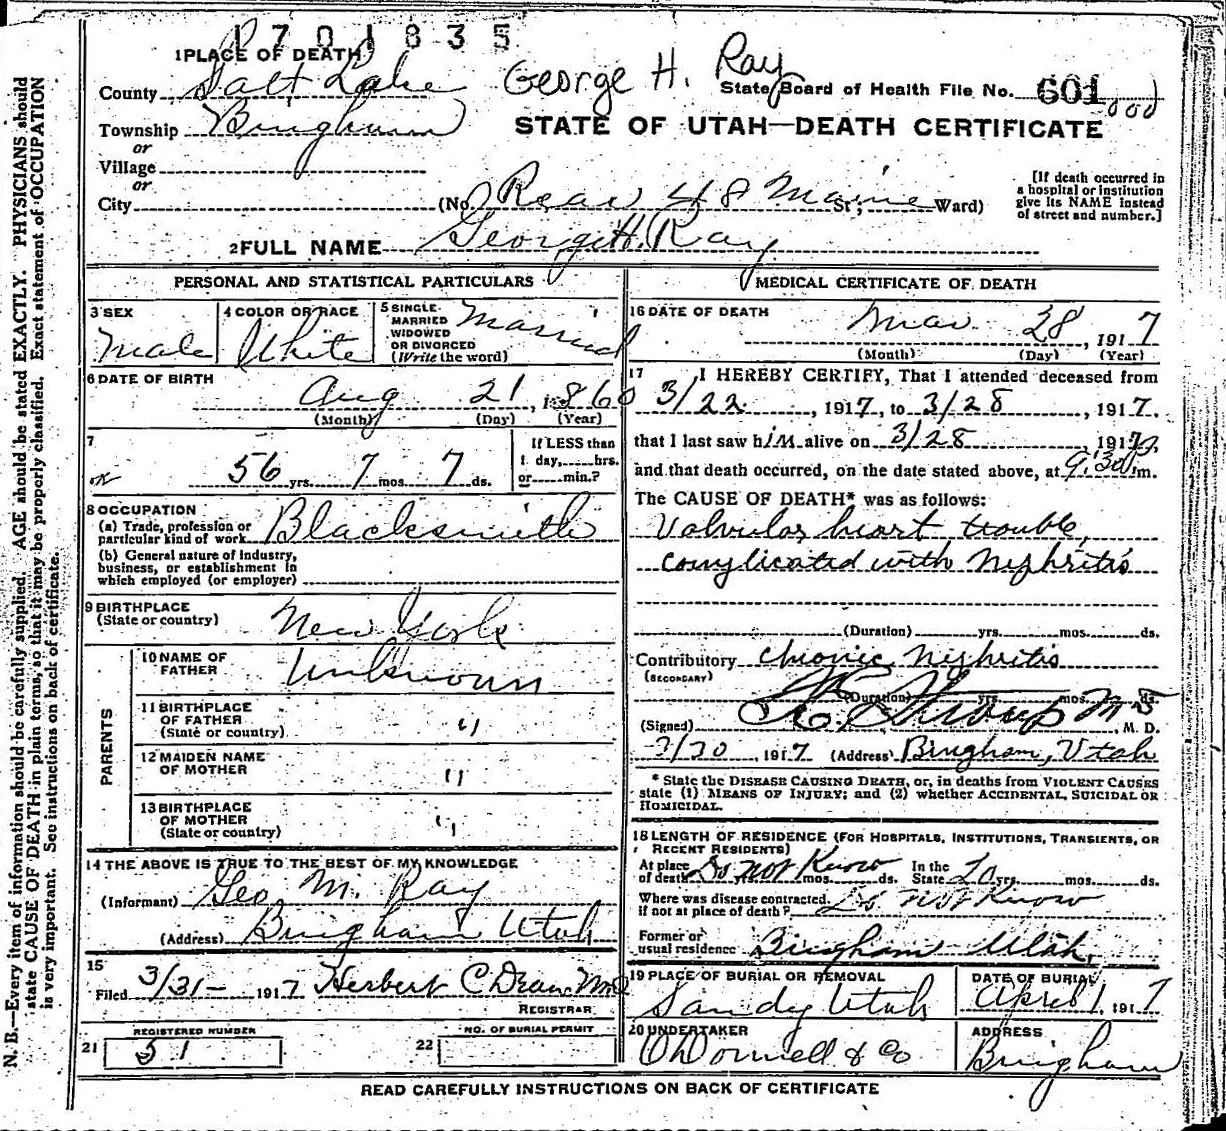 1701835
1 PLACE OF DEATH
County Salt Lake George H. Ray State Board of Health File No. 601
Township Bingham STATE OF UTAH—DEATH CERTIFICATE
or
Village
or
City (No. Rear 48 Maine St.; Ward)
[If death occurred in a hospital or institution give its NAME instead of street and number.]
2 FULL NAME George H. Ray
PERSONAL AND STATISTICAL PARTICULARS
3 SEX Male
4 COLOR OR RACE White
5 SINGLE MARRIED WIDOWED OR DIVORCED (Write the word) Married
6 DATE OF BIRTH Aug 21, 1860
(Month) (Day) (Year)
7 56 yrs. 7 mos. 7 ds.
If LESS than 1 day, hrs. or min.?
8 OCCUPATION
(a) Trade, profession or particular kind of work Blacksmith
(b) General nature of industry, business, or establishment in which employed (or employer)
9 BIRTHPLACE (State or country) New York
PARENTS
10 NAME OF FATHER Unknown
11 BIRTHPLACE OF FATHER (State or country) "
12 MAIDEN NAME OF MOTHER "
13 BIRTHPLACE OF MOTHER (State or country) "
14 THE ABOVE IS TRUE TO THE BEST OF MY KNOWLEDGE
(Informant) Geo M. Ray
(Address) Bingham Utah
15 Filed 3/31- 1917 Herbert C
REGISTRAR
21 REGISTERED NUMBER 51
22 NO. OF BURIAL PERMIT
MEDICAL CERTIFICATE OF DEATH
16 DATE OF DEATH Mar 28, 1917
(Month) (Day) (Year)
17 I HEREBY CERTIFY, That I attended deceased from
3/22, 1917, to 3/28, 1917.
that I last saw him alive on 3/28, 1917,
and that death occurred, on the date stated above, at 9:30 m.
The CAUSE OF DEATH* was as follows:
Valvular heart trouble,
complicated with Nephritis
(Duration) yrs. mos. ds.
Contributory Chronic Nephritis
(SECONDARY)
(Duration) yrs. mos. ds.
(Signed) M.D.
3/30, 1917 (Address) Bingham, Utah
* State the DISEASE CAUSING DEATH, or, in deaths from VIOLENT CAUSES
state (1) MEANS OF INJURY; and (2) whether ACCIDENTAL, SUICIDAL OR
HOMICIDAL.
18 LENGTH OF RESIDENCE (FOR HOSPITALS, INSTITUTIONS, TRANSIENTS, OR
RECENT RESIDENTS)
At place of death Do not Know yrs. mos. ds. In the State 20 yrs. mos. ds.
Where was disease contracted, if not at place of death? Do not Know
Former or usual residence Bingham Utah,
19 PLACE OF BURIAL OR REMOVAL Sandy Utah
DATE OF BURIAL April 1, 1917
20 UNDERTAKER O'Donnell & Co
ADDRESS Bingham
READ CAREFULLY INSTRUCTIONS ON BACK OF CERTIFICATE
N. B.—Every item of information should be carefully supplied. AGE should be stated EXACTLY. PHYSICIANS should
state CAUSE OF DEATH in plain terms, so that it may be properly classified. Exact statement of OCCUPATION
is very important. See instructions on back of certificate.